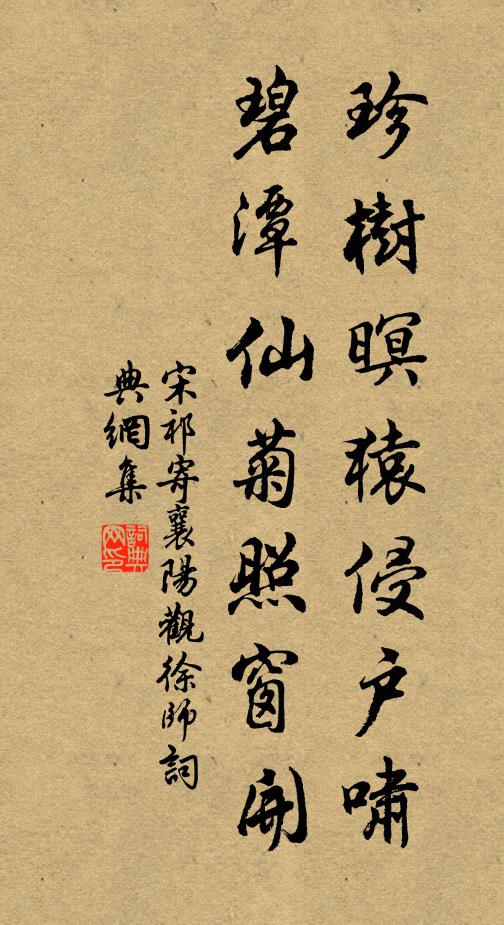 珍樹暝猿侵户嘯
碧潭仙菊照窗開
宋祁寄襄陽觀徐師詞
典網集
詞典
网印